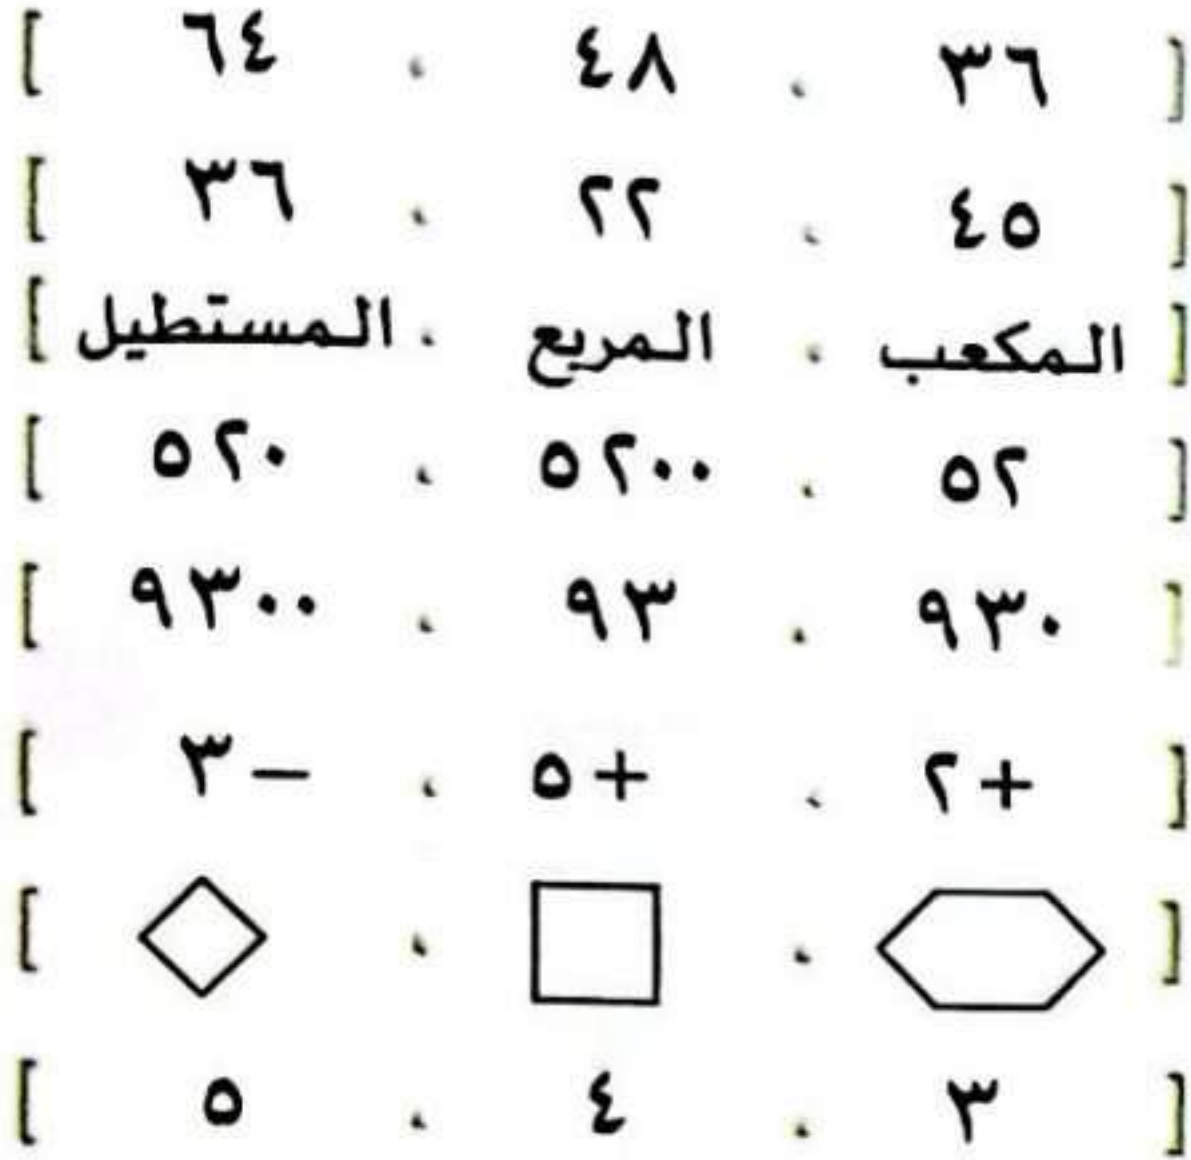 [ ٣٦ ، ٤٨ ، ٦٤ ]
[ ٤٥ ، ٢٢ ، ٣٦ ]
[ المكعب ، المربع ، المستطيل ]
[ ٥٢ ، ٥٢٠٠ ، ٥٢٠ ]
[ ٩٣٠ ، ٩٣ ، ٩٣٠٠ ]
[ +٢ ، +٥ ، −٣ ]
[ ، ، ]
[ ٣ ، ٤ ، ٥ ]